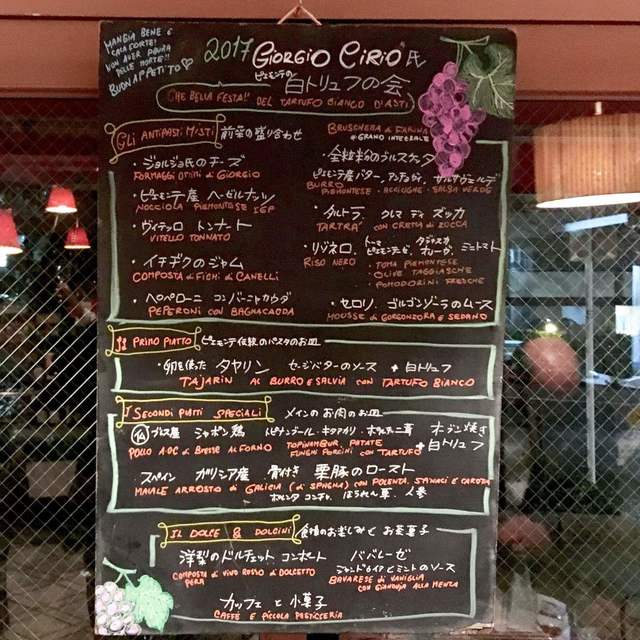 MANGIA BENE E
CACA FORTE!
NON AVER PAURA
DELLE MORTE!!
BUON APPETITO
2017 GIORGIO CIRIO氏
ピエモンテの 白トリュフの会
CHE BELLA FESTA!! DEL TARTUFO BIANCO D'ASTI
GLI ANTIPASTI MISTI 前菜の盛り合わせ
・ジョルジョ氏のチーズ
FORMAGGI DI GIORGIO
・ピエモンテ産 ヘーゼルナッツ
NOCCIOLA PIEMONTESE IGP
・ヴィテッロ トンナート
VITELLO TONNATO
・イチヂクのジャム
COMPOSTA DI FICHI DI CANELLI
・ペペローニ コンバーニャカウダ
PEPERONI CON BAGNACAODA
BRUSCHETTA DI FARINA
GRANO INTEGRALE
・全粒粉のブルスケッタ
ピエモンテ産バター、アンチョヴィ、サルサヴェルデ
BURRO PIEMONTESE・ACCIUGHE・SALSA VERDE
・タルトラ、クレマ ディ ズッカ
TARTRA' CON CREMA DI ZOCCA
・リゾネロ、トーマピエモンテーゼ、タジャスカオリーヴ、ミニトマト
RISO NERO
・TOMA PIEMONTESE
・OLIVE TAGGIASCHE
・POMODORINI FRESCHE
・セロリ、ゴルゴンゾーラのムース
MOUSSE DI GORGONZORA E SEDANO
IL PRIMO PIATTO ピエモンテ伝統のパスタのお皿
・卵を使った タヤリン セージバターのソース + 白トリュフ
TAJARIN AL BURRO E SALVIA CON TARTUFO BIANCO
I SECONDI PIATTI SPECIALI メインのお肉のお皿
ブレス産 シャポン鶏 トピナンブール・キタアカリ・ポルチーニ茸 オーブン焼き +白トリュフ
POLLO A.O.C DI BRESSE AL FORNO TOPINAMBUR PATATE
FUNGHI PORCINI CON TARTUFO
スペイン ガリシア産 骨付き 栗豚のロースト
MAIALE ARROSTO DI GALICIA (DI SPAGNA) CON POLENTA, SPINACI E CAROTA
ポレンタ コンチャ、ほうれん草、人参
IL DOLCE & DOLCINI 食後のお楽しみと お茶菓子
洋梨のドルチェット コンポート
COMPOSTA DI VINO ROSSO DI DOLCETTO
PERA
ババレーゼ
ジャンドゥイヤとミントのソース
BAVARESE DI VANIGLIA
CON GIANDUJA ALLA MENTA
カッフェ と 小菓子
CAFFÈ E PICCOLA PASTICCERIA